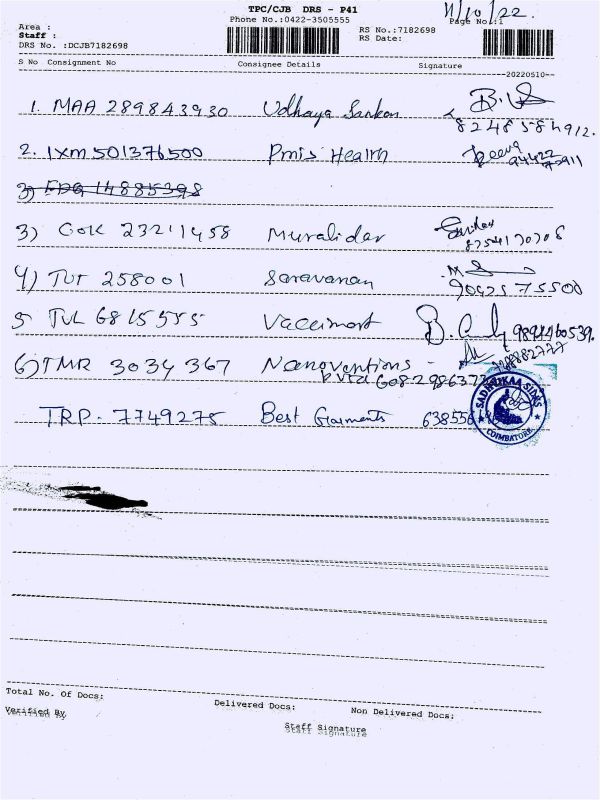 TPC/CJB DRS - P41
11/10/22.
Phone No.:0422-3505555
Page No.:1
Area :
Staff :
RS No.:7182698
DRS No. :DCJB7182698
RS Date:
S No Consignment No Consignee Details Signature
20220510
1. MAA 289843930 Udhaya Sankar
8248584912.
2. IXM 501376500 Pmis Health
3) FDG 14885398
3) GOK 23211458 Muralidar
8754170706
4) TUT 258001 Saravanan
9042575500
5 TVL 6815555
9894460539.
6) TMR 3034367 Nanoventions
TRP. 7749275 Best Garments
SADHUKAA SILKS
COIMBATORE
Total No. Of Docs:
Delivered Docs: Non Delivered Docs:
Verified By
Staff Signature